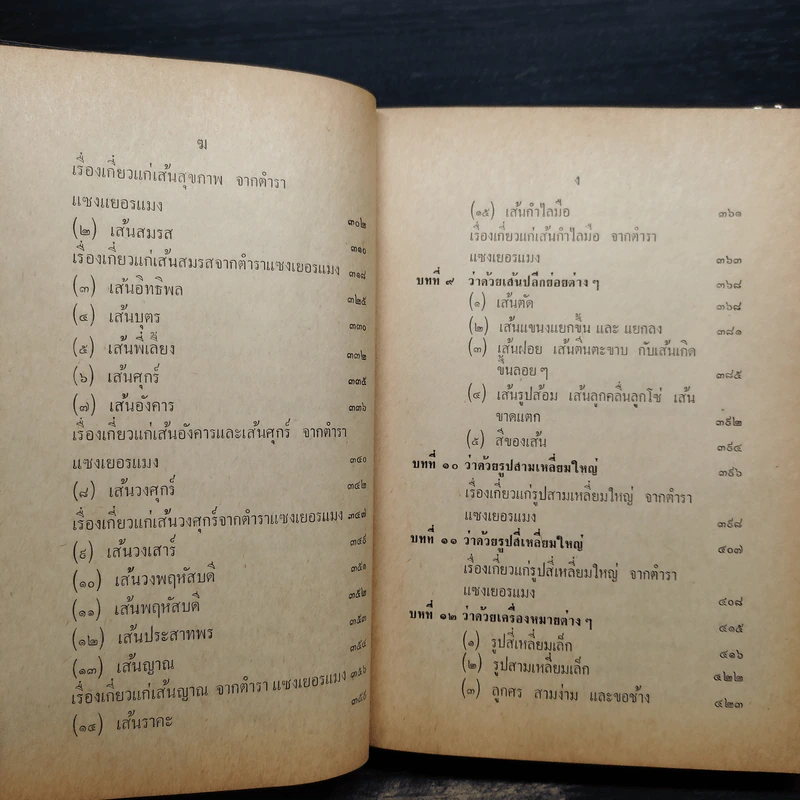 ฆ
เรื่องเกี่ยวแก่เส้นสุขภาพ จากตำรา
แซงแยอรแมง ๓๐๒
(๒) เส้นสมรส ๓๑๐
เรื่องเกี่ยวแก่เส้นสมรสจากตำราแซงเยอรแมง ๓๑๘
(๓) เส้นอิทธิพล ๓๒๕
(๔) เส้นบุตร ๓๓๐
(๕) เส้นพี่เลี้ยง ๓๓๒
(๖) เส้นศุกร์ ๓๓๕
(๗) เส้นอังคาร ๓๓๖
เรื่องเกี่ยวแก่เส้นอังคารและเส้นศุกร์ จากตำรา
แซงเยอรแมง ๓๔๐
(๘) เส้นวงศุกร์ ๓๔๒
เรื่องเกี่ยวแก่เส้นวงศุกร์จากตำราแซงเยอรแมง ๓๔๗
(๙) เส้นวงเสาร์ ๓๔๙
(๑๐) เส้นวงพฤหัสบดี ๓๕๑
(๑๑) เส้นพฤหัสบดี ๓๕๒
(๑๒) เส้นประสาทพร ๓๕๓
(๑๓) เส้นญาณ ๓๕๔
เรื่องเกี่ยวแก่เส้นญาณ จากตำรา แซงเยอรแมง ๓๕๖
(๑๔) เส้นราคะ ๓๕๙
ง
(๑๕) เส้นกำไลมือ ๓๖๑
เรื่องเกี่ยวแก่เส้นกำไลมือ จากตำรา
แซงเยอรแมง ๓๖๓
บทที่ ๙ ว่าด้วยเส้นปลีกย่อยต่าง ๆ ๓๖๘
(๑) เส้นตัด ๓๖๘
(๒) เส้นแขนงแยกขึ้น และ แยกลง ๓๘๑
(๓) เส้นฝอย เส้นตีนตะขาบ กับเส้นเกิด
ขึ้นลอย ๆ ๓๘๕
(๔) เส้นรูปส้อม เส้นลูกคลื่นลูกโซ่ เส้น
ขาดแตก ๓๙๒
(๕) สีของเส้น ๓๙๔
บทที่ ๑๐ ว่าด้วยรูปสามเหลี่ยมใหญ่ ๓๙๖
เรื่องเกี่ยวแก่รูปสามเหลี่ยมใหญ่ จากตำรา
แซงเยอรแมง ๓๙๘
บทที่ ๑๑ ว่าด้วยรูปสี่เหลี่ยมใหญ่ ๔๐๗
เรื่องเกี่ยวแก่รูปสี่เหลี่ยมใหญ่ จากตำรา
แซงเยอรแมง ๔๐๘
บทที่ ๑๒ ว่าด้วยเครื่องหมายต่าง ๆ ๔๑๕
(๑) รูปสี่เหลี่ยมเล็ก ๔๑๖
(๒) รูปสามเหลี่ยมเล็ก ๔๒๒
(๓) ลูกศร สามง่าม และขอช้าง ๔๒๓